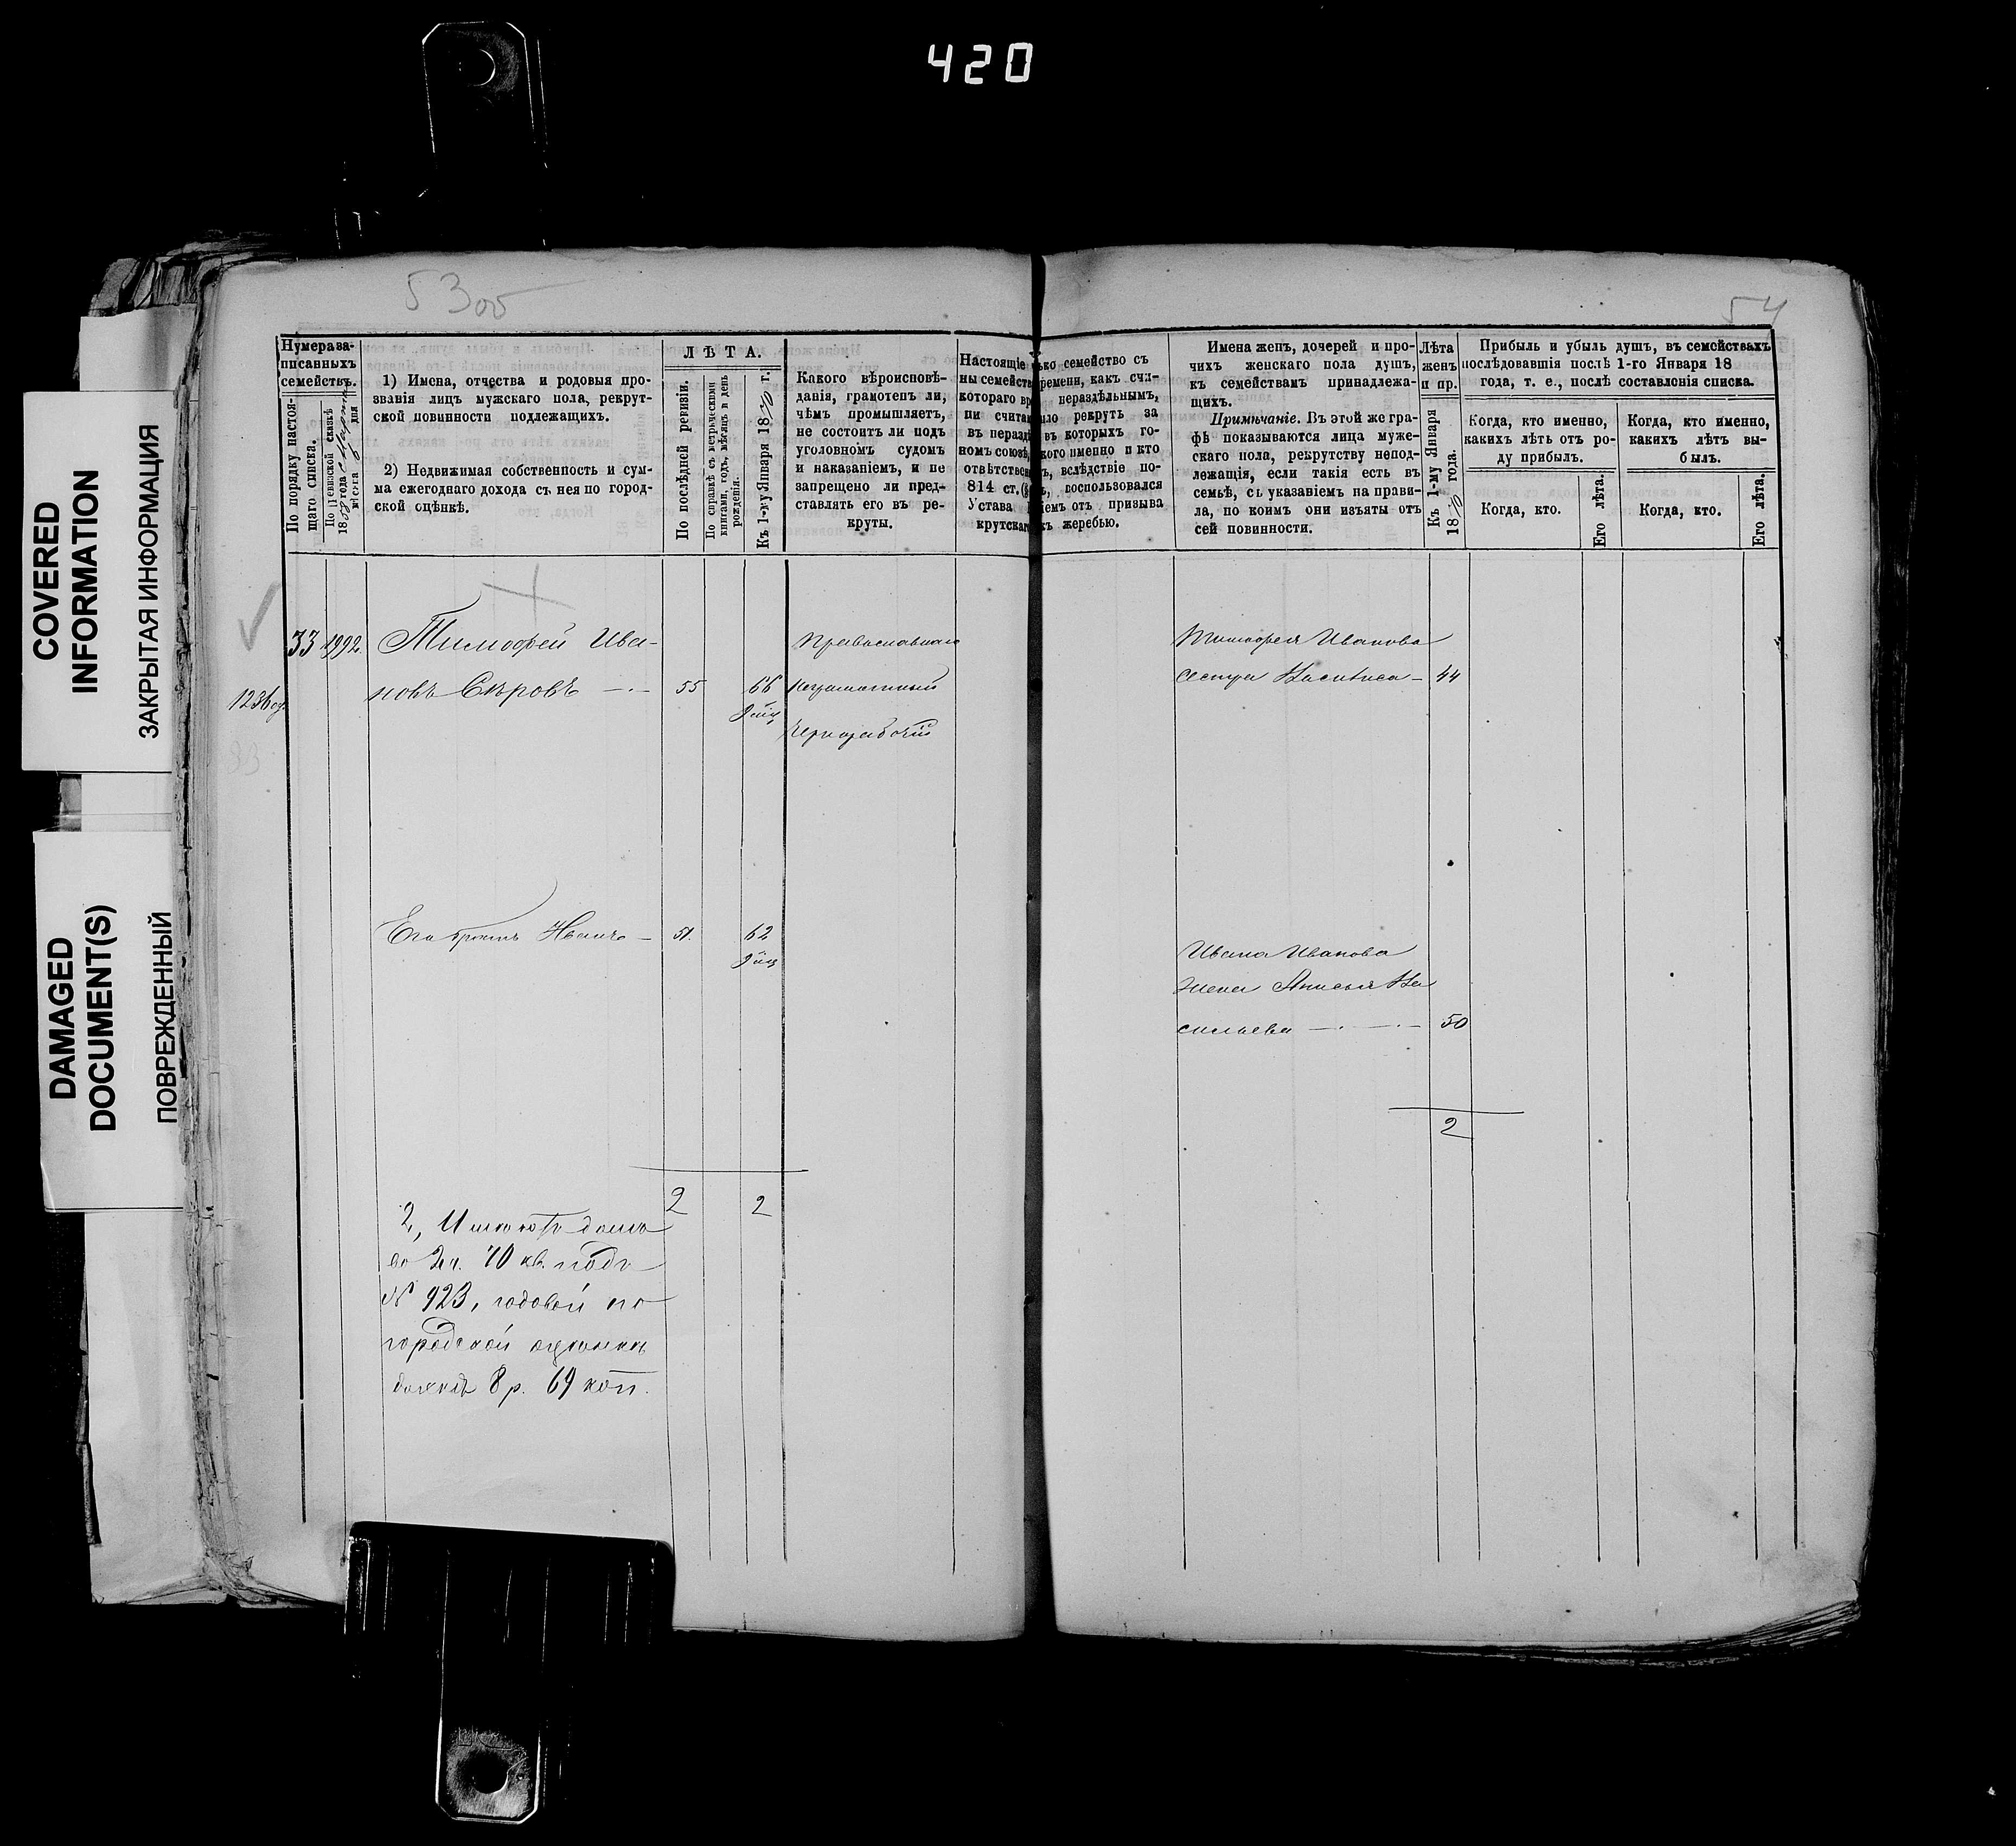 420
COVERED
INFORMATION
ЗАКРЫТАЯ ИНФОРМАЦИЯ
DAMAGED
DOCUMENT(S)
ПОВРЕЖДЕННЫЙ
53об
54
Нумера за-
писанныхъ
семействъ.
По порядку настоя-
щаго списка.
По ревизской сказкѣ
1858 года Марта
мѣсяца дня
1) Имена, отчества и родовыя про-
званія лицъ мужскаго пола, рекрут-
ской повинности подлежащихъ.
2) Недвижимая собственность и сум-
ма ежегоднаго дохода съ нея по город-
ской оцѣнкѣ.
ЛѢТА.
По послѣдней ревизіи.
По справкѣ съ метрическими
книгами, годъ, мѣсяцъ и день
рожденія.
Къ 1-му Января 1870 г.
Какого вѣроисповѣ-
данія, грамотенъ ли,
чѣмъ промышляетъ,
не состоитъ ли подъ
уголовномъ судомъ
и наказаніемъ, и не
запрещено ли пред-
ставлять его въ ре-
круты.
Настоящіе
ны семейства
котораго вр
ли счита
въ неразд
номъ союзѣ,
отвѣтствен
814 ст.
Устава
крутскаг
ко семейство съ
времени, какъ счи-
нераздѣльнымъ,
ло рекрутъ за
въ которыхъ го-
кого именно и кто
ъ, вслѣдствіе по-
воспользовался
іемъ отъ призыва
къ жеребью.
Имена женъ, дочерей и про-
чихъ женскаго пола душъ,
къ семействамъ принадлежа-
щихъ.
Примѣчаніе. Въ этой же гра-
фѣ показываются лица муже-
скаго пола, рекрутству непод-
лежащія, если такія есть въ
семьѣ, съ указаніемъ на прави-
ла, по коимъ они изъяты отъ
сей повинности.
Лѣта
женъ
и пр.
Къ 1-му Января
1870 года.
Прибыль и убыль душъ, въ семействахъ
послѣдовавшія послѣ 1-го Января 18
года, т. е., послѣ составленія списка.
Когда, кто именно,
какихъ лѣтъ отъ ро-
ду прибылъ.
Когда, кто именно,
какихъ лѣтъ вы-
былъ.
Когда, кто.
Его лѣта.
Когда, кто.
Его лѣта.
33 1992. Тимофей Ива-
новъ Сѣровъ 55 66
Православнаго
неграмотный
чернорабочій
Тимофея Иванова
сестра Василиса 44
33
Его братъ Иванъ 51. 62
Ивана Иванова
жена Анисья Ва
сильева 50
2
2 2
2, Имѣютъ домъ
во 2 ч. 70 кв. подъ
№ 923, годовой по
городской оцѣнкѣ
доходъ 8 р. 69 коп.